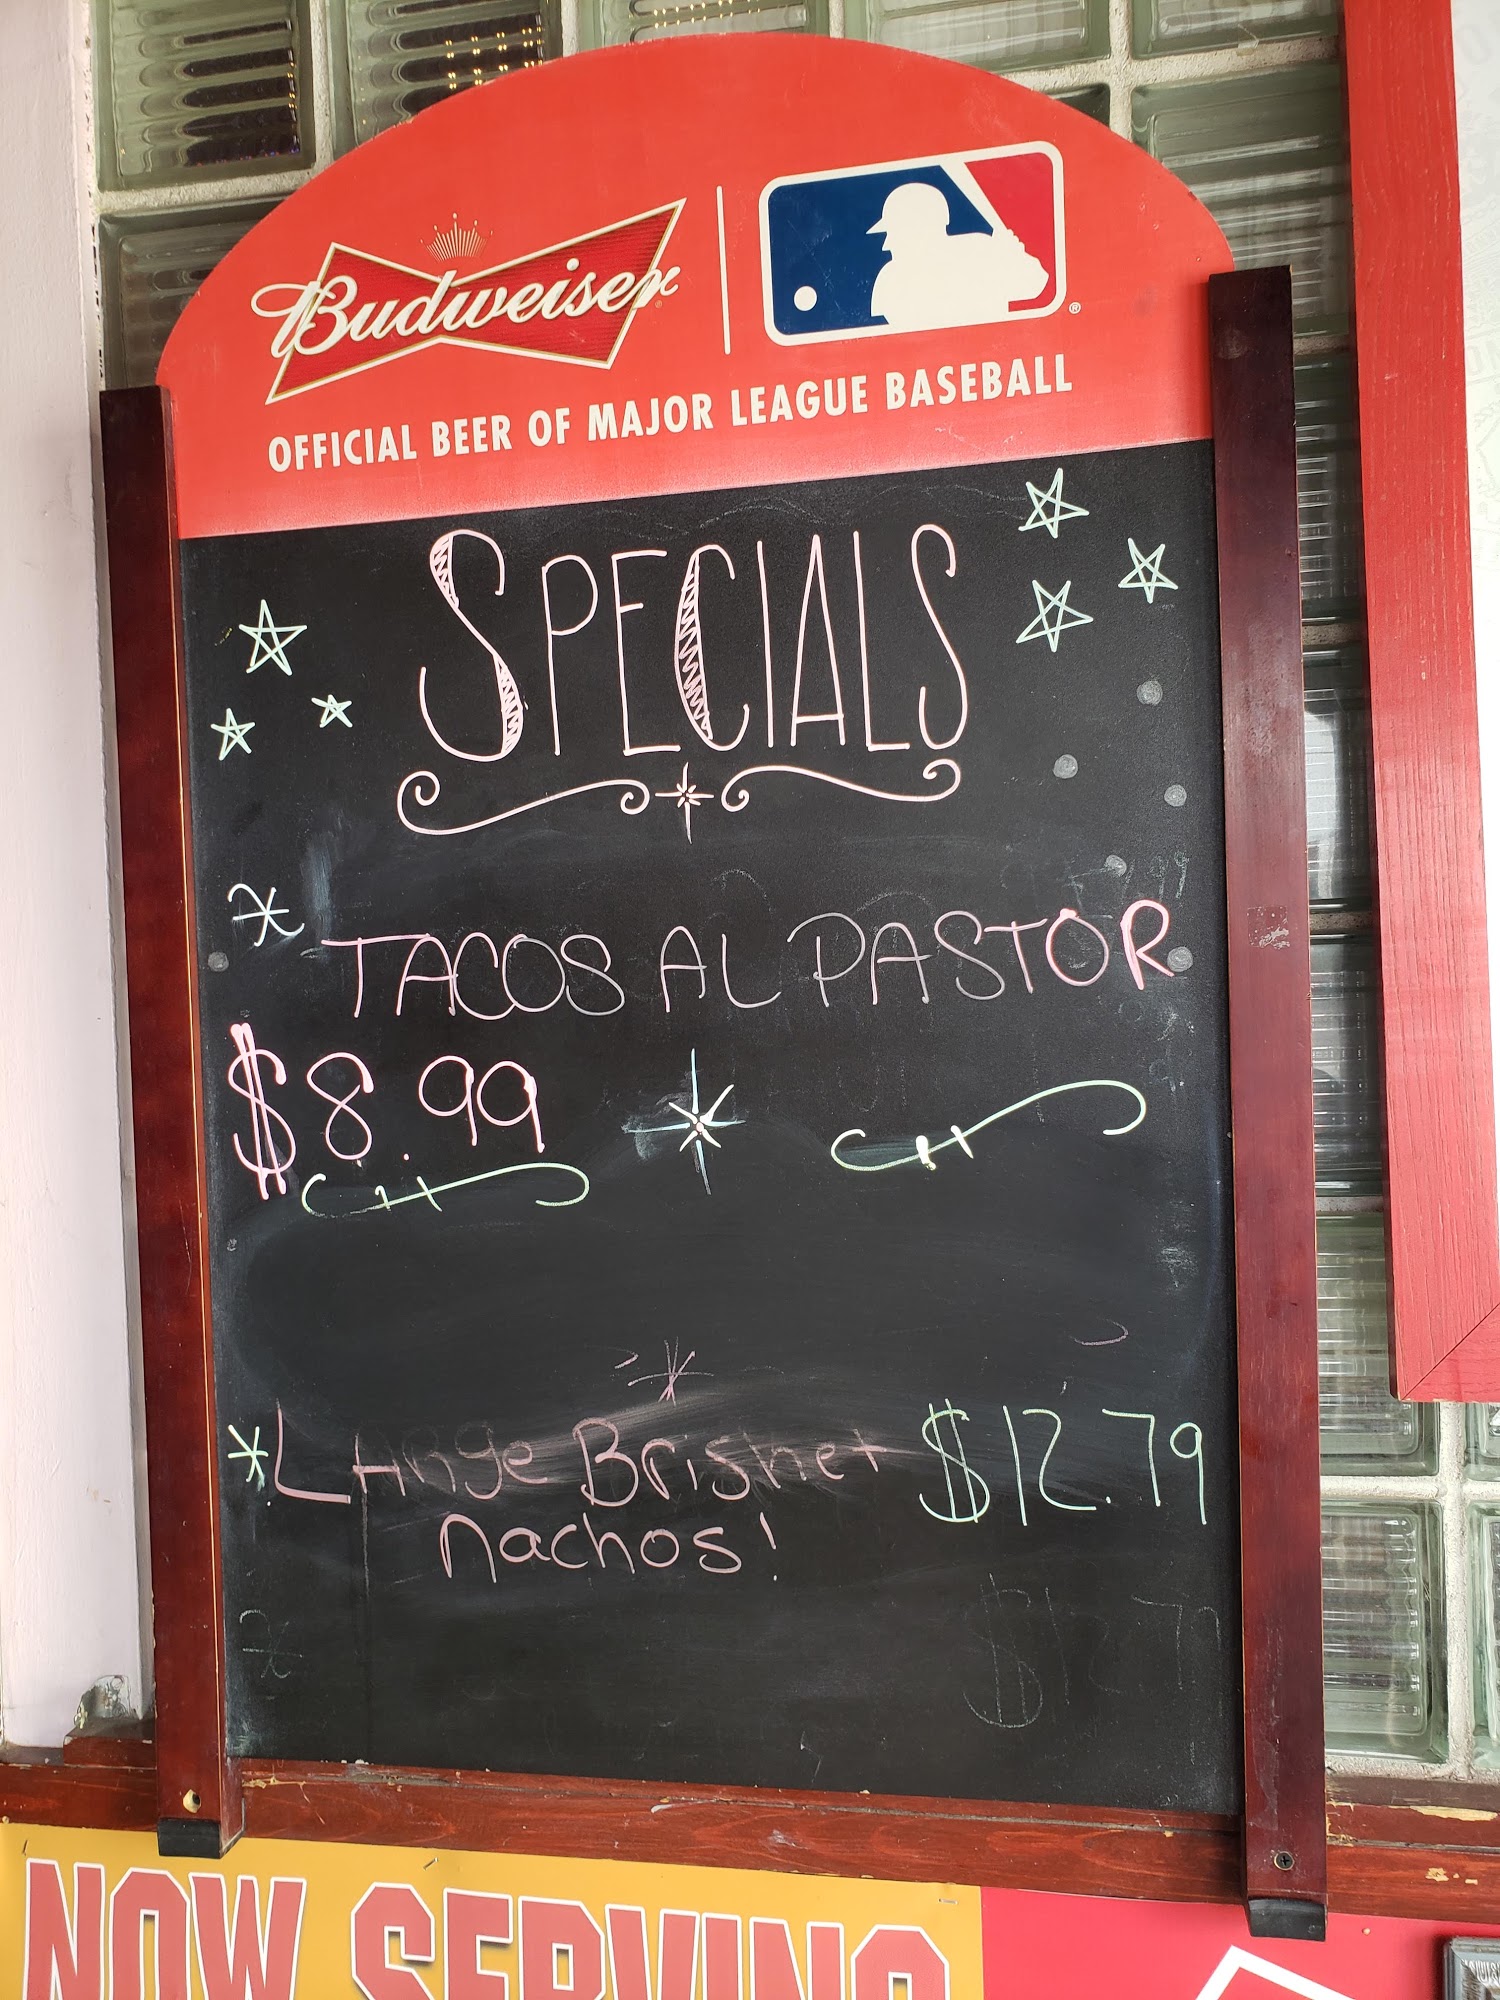 Budweiser
OFFICIAL BEER OF MAJOR LEAGUE BASEBALL
SPECIALS
* TACOS AL PASTOR
$8.99
* LArge Brisket $12.79
nachos!
$12.7
NOW SERVING